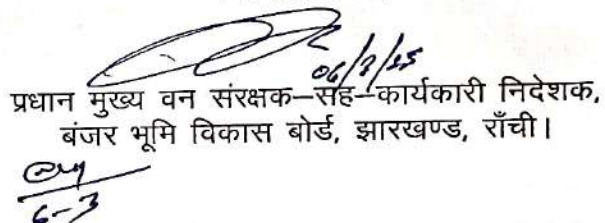 06/3/25
प्रधान मुख्य वन संरक्षक–सह–कार्यकारी निदेशक,
बंजर भूमि विकास बोर्ड, झारखण्ड, राँची।
6-3